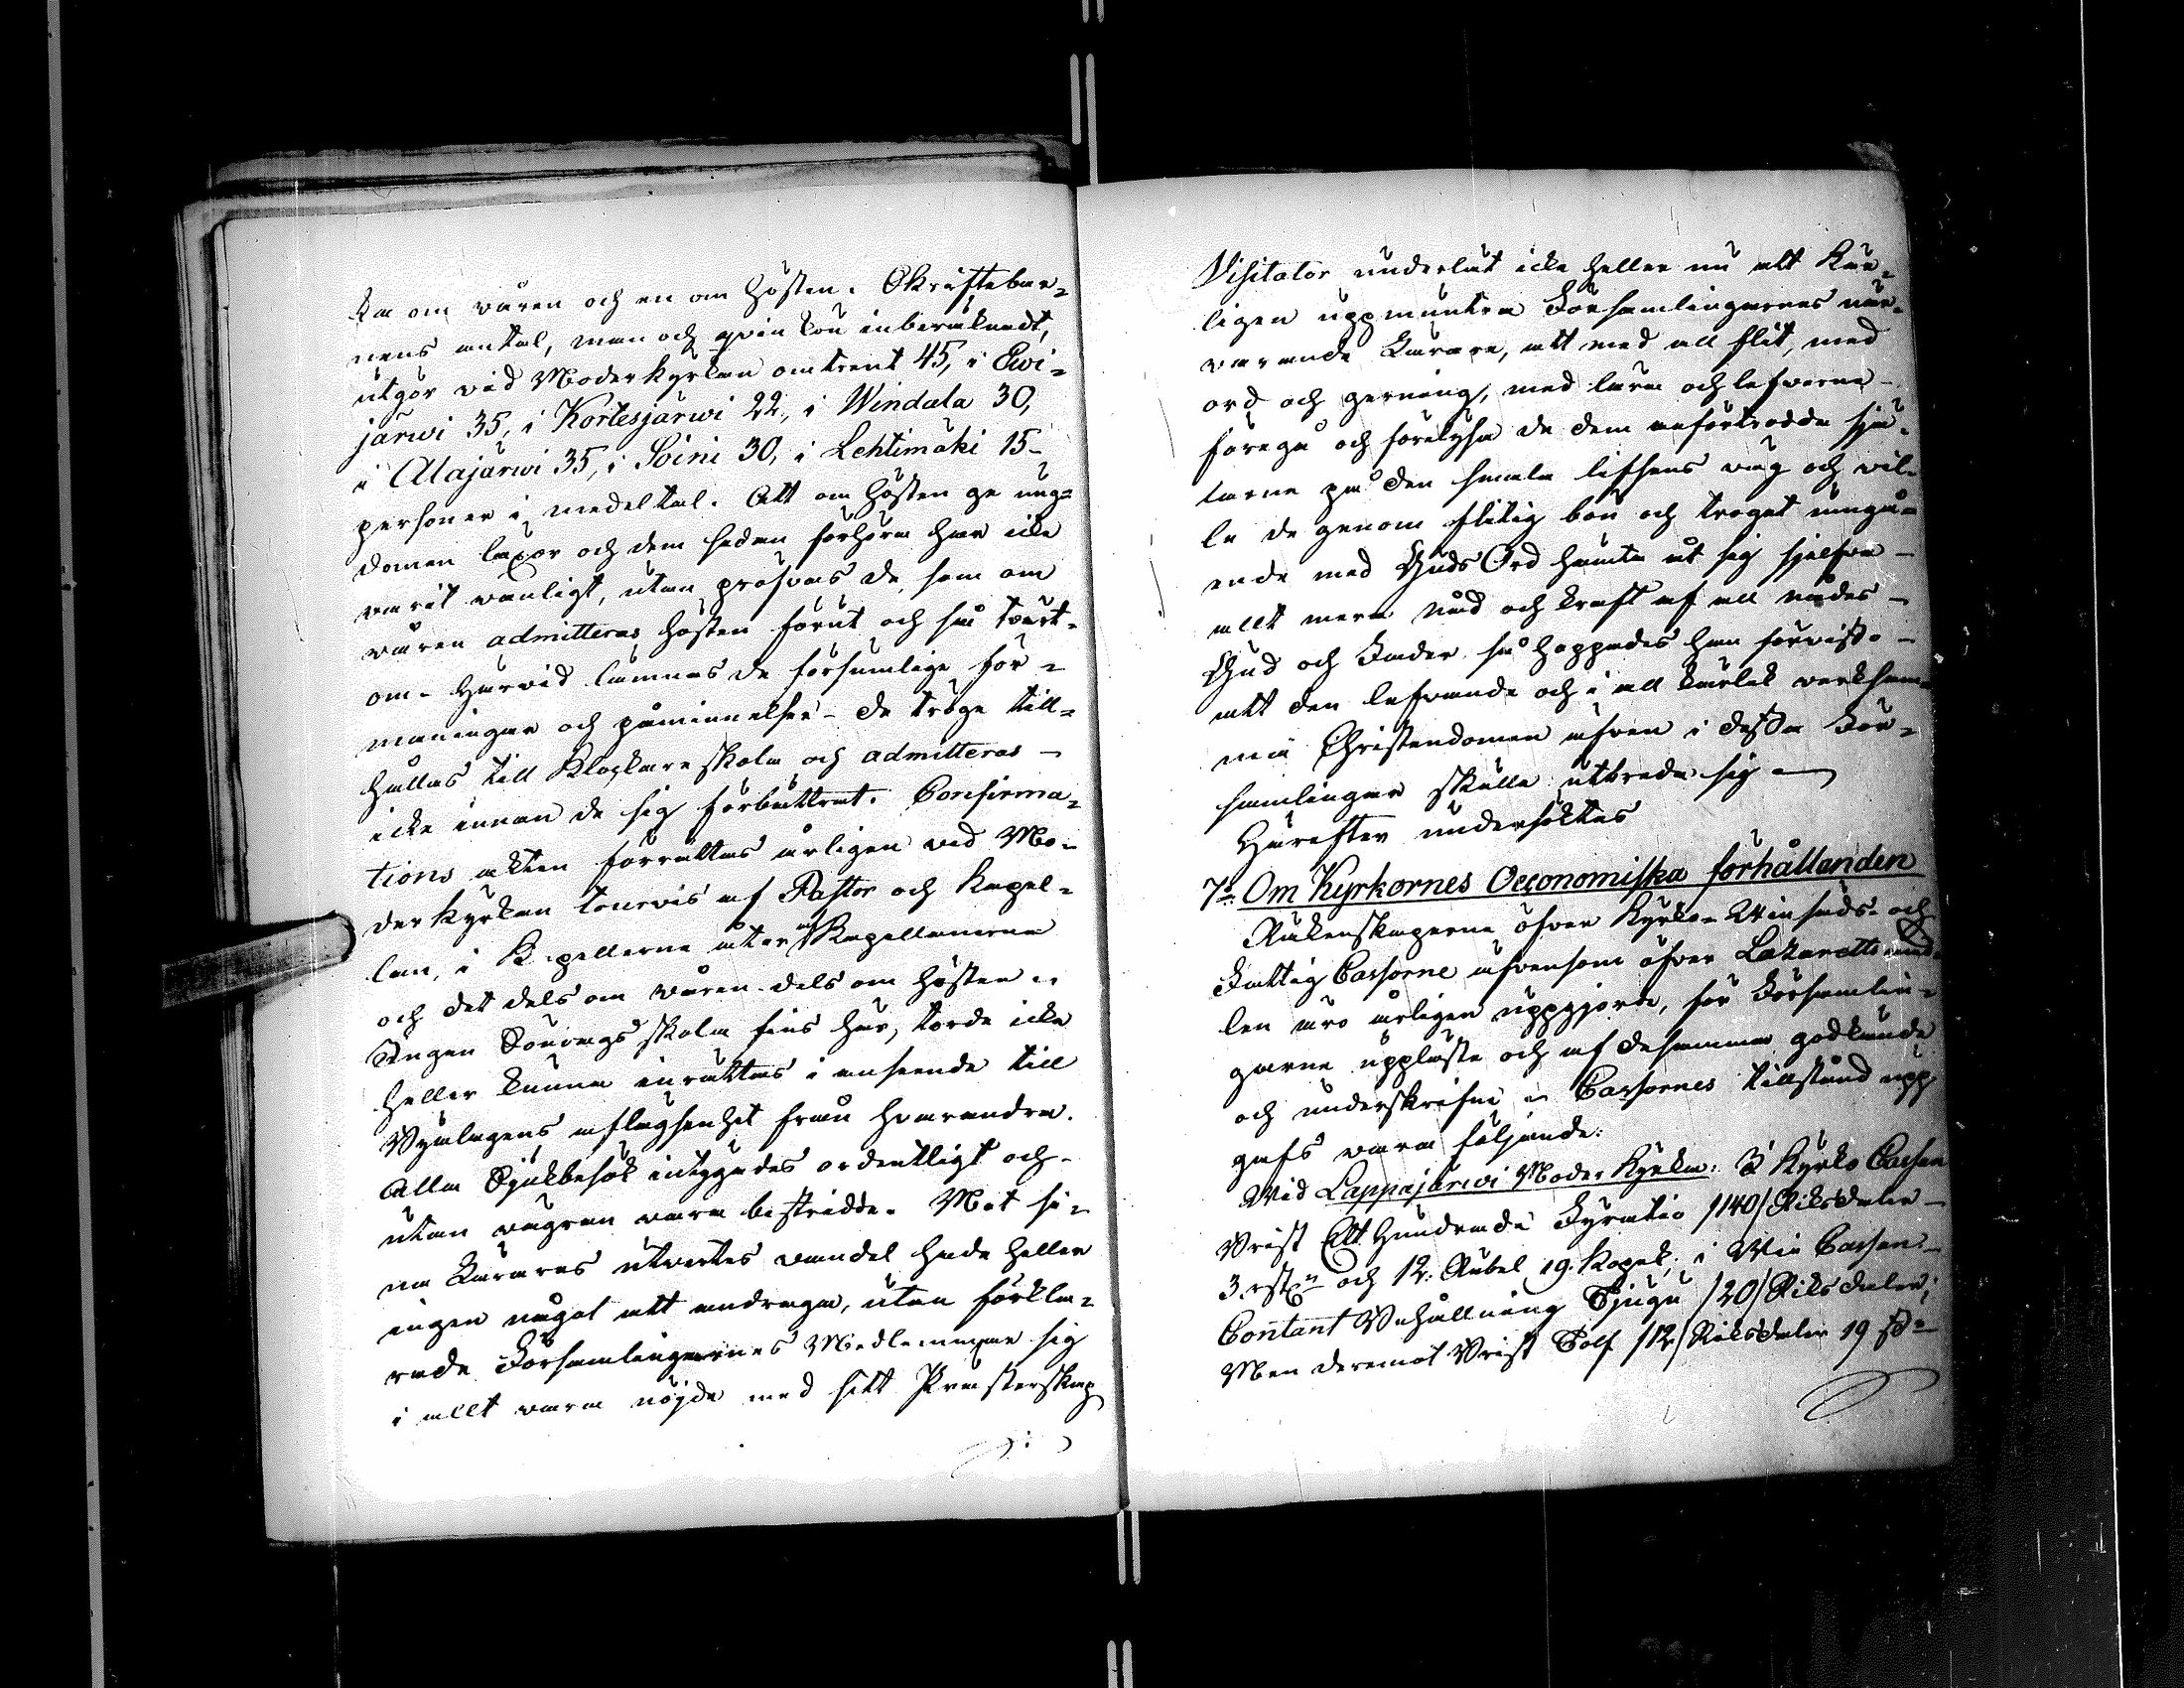 ka om våren och en om hösten. Skriftebar=
nens antal, man och qvinkön inberäknadt,
utgör vid Moderkyrkan omtrent 45, i Ewi=
järwi 35, i Kortesjärwi 22, i Windala 30,
i Alajärwi 35, i Soini 30, i Lehtimäki 15-
personer i medeltal. Att om hösten ge ung=
domen laxor och dem sedan förhöra har icke
varit vanligt, utan pröfvas de, som om
våren admitteras hösten förut och så tvert-
om. Härvid lämnas de försumlige för=
maningar och påminnelser – de tröge till=
hållas till Klockareskola och admitteras –
icke innan de sig förbättrat. Confirma=
tions akten förrättas årligen vid Mo=
derkyrkan tourvis af Pastor och Kapel=
lan, i Kapellerne åter af Kapellanerna
och det dels om våren dels om hösten.
Ingen Söndags skola fins här, torde icke
heller kunna inrättas i anseende till
Byalagens aflägsenhet från hvarandra.
Alla Sjukbesök intygades ordentligt och
utan vägran vara bestridde. Mot si=
na Lärares utvertes vandel hade heller
ingen något att andraga, utan förkla=
rade Församlingarnes Medlemmar sig
i allt vara nöjde med sitt Presterskap
Visitator underlät icke heller nu att kär=
ligen uppmuntra Församlingarnes när-
varande Lärare, att med all flit, med
ord och gerning, med lära och lefverne –
föregå och förelysa de dem anförtrodda sjä-
larne på den smala lifsens väg och vil-
la de genom flitig bön och troget umgå=
ende med Guds Ord hämta åt sig sjelfva –
allt mera nåd och kraft af all nådes –
Gud och Fader, så hoppades han förvisso –
att den lefvande och i all kärlek verksam-
ma Christendomen äfven i dessa För=
samlingar skulle utbreda sig –
Härefter undersöktes
7:o Om Kyrkornes Oeconomiska förhållanden
Räkenskaperna öfver Kyrko- Winsäds- och
Fattig Cassorne äfvensom öfver Lazaretts med-
len äro årligen uppgjorda, för Församlin=
garne uppläste och af desamma godkände
och underskrifne. Cassornes tillstånd upp-
gafs vara följande:
Wid Lappajärwi Moder Kyrka: I Kyrko Cassan
Brist Ett Hundrade Fyratio /140/ Riksdaler –
3. rst. och 12. Rubel 19. Kopek; i Win Cassan –
Contant Behållning Tjugu /20/ Riksdaler;
Men deremot Brist Tolf /12/ Riksdaler 19 s: